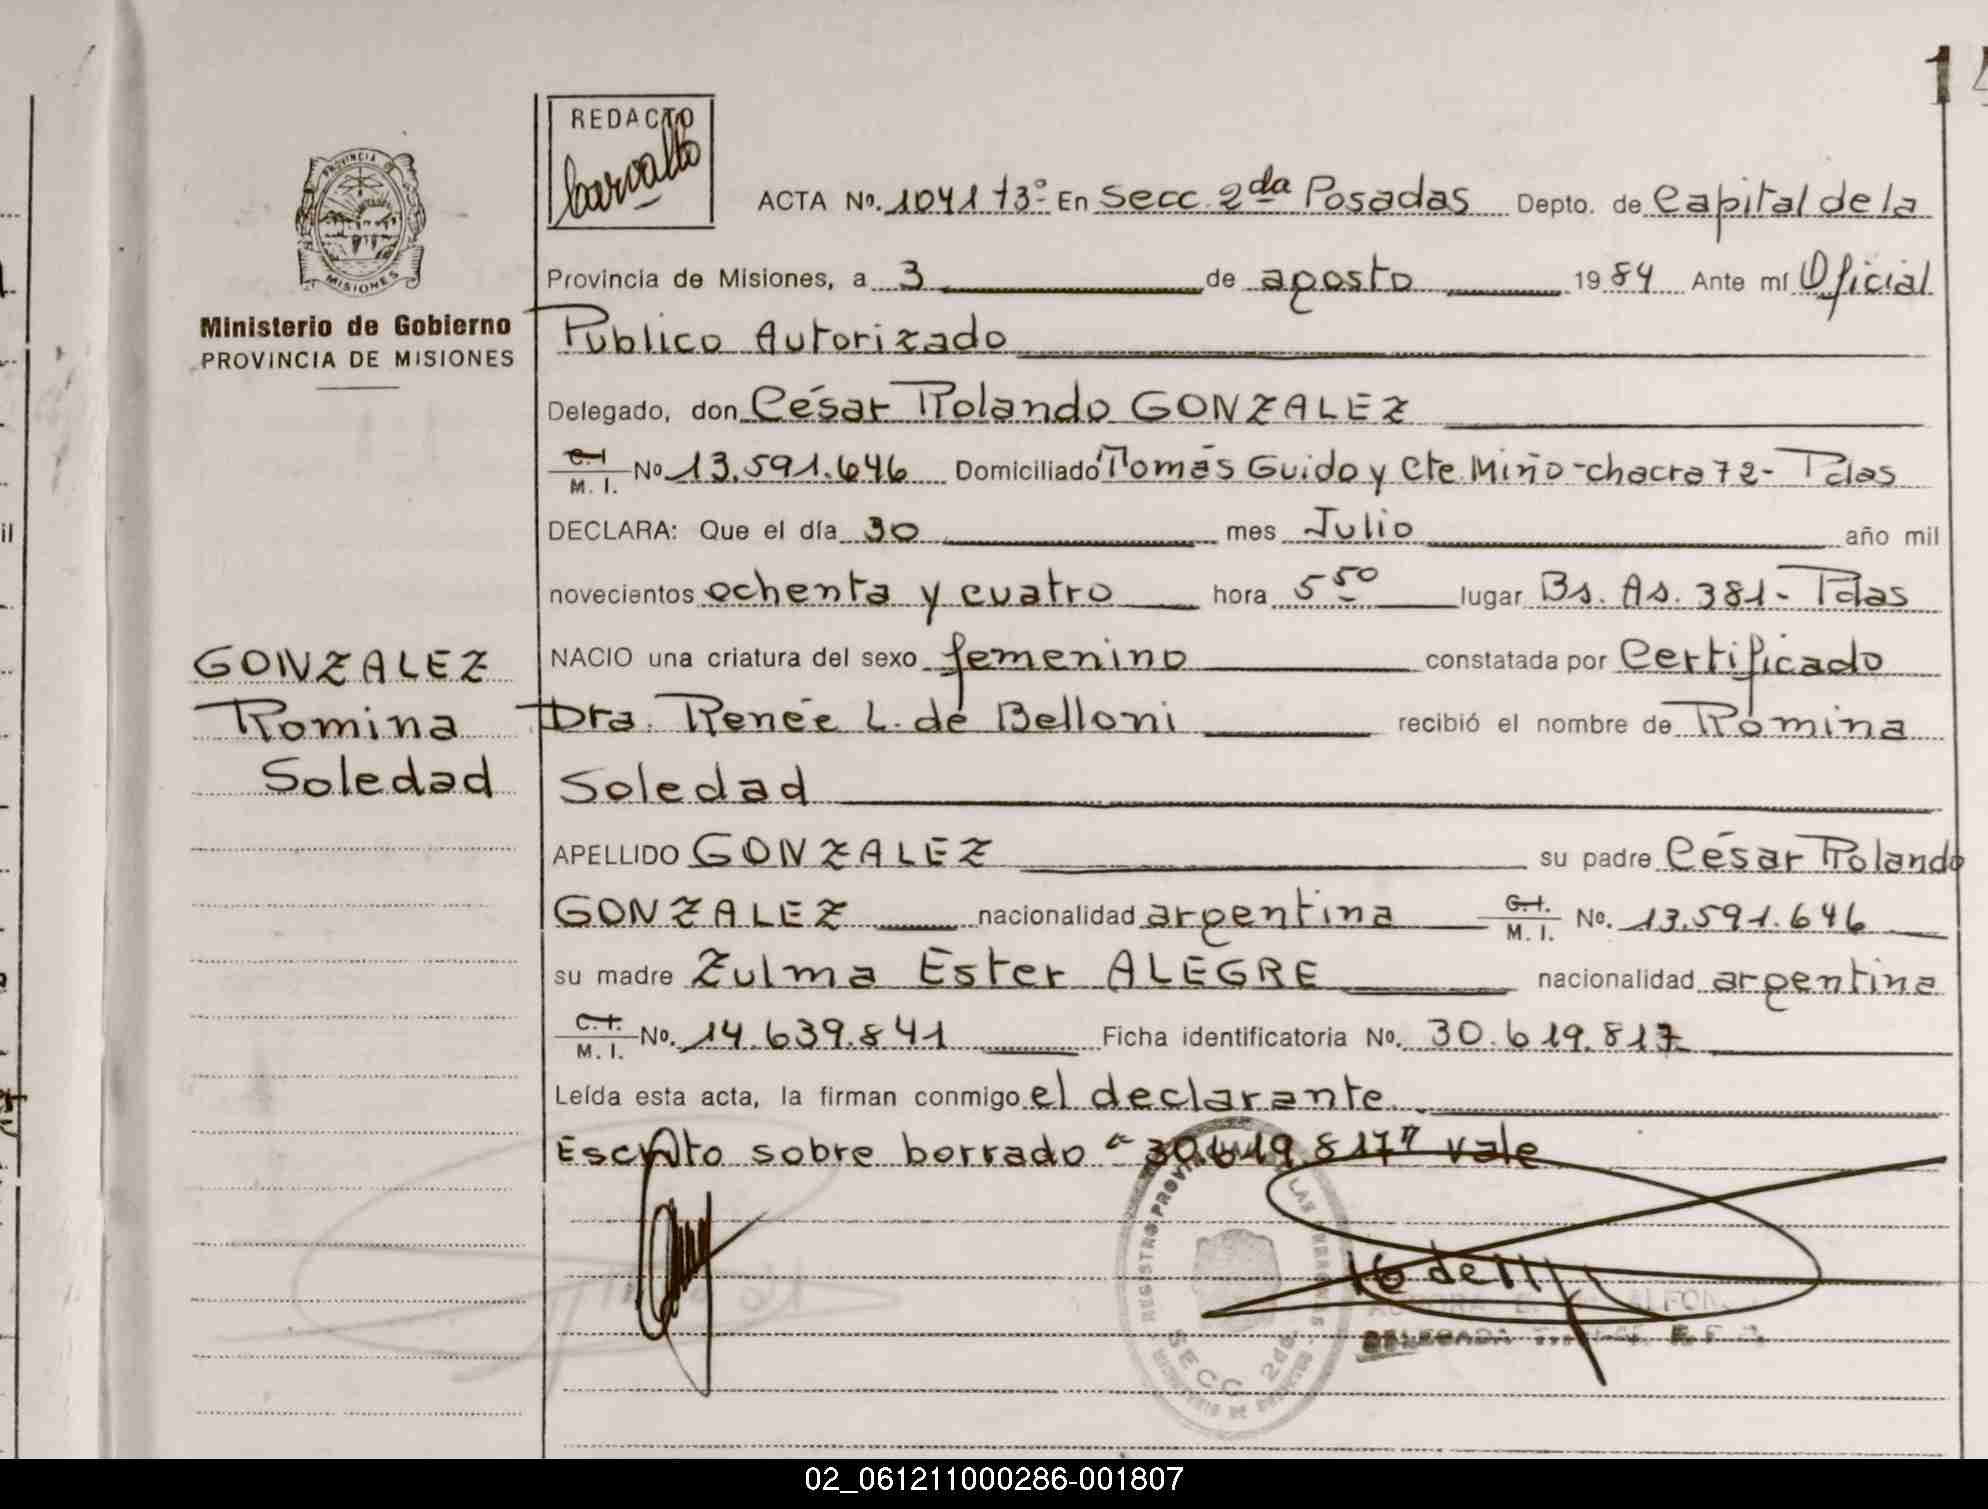 14
REDACTO
Carvallo
PROVINCIA DE
MISIONES
Ministerio de Gobierno
PROVINCIA DE MISIONES
ACTA No. 1041 t3º En Secc. 2da Posadas Depto. de Capital de la
Provincia de Misiones, a 3 de agosto 1984 Ante mí Oficial
Público Autorizado
Delegado, don César Rolando GONZALEZ
C.I. M. I. No 13.591.646 Domiciliado Tomás Guido y Cte. Miño-chacra 72- Pdas
DECLARA: Que el día 30 mes Julio año mil
novecientos ochenta y cuatro hora 5 50 lugar Bs. As. 381- Pdas
NACIO una criatura del sexo femenino constatada por Certificado
Dra. Renée L. de Belloni recibió el nombre de Romina
Soledad
GONZALEZ
Romina
Soledad
APELLIDO GONZALEZ su padre César Rolando
GONZALEZ nacionalidad argentina C.I. M. I. No. 13.591.646
su madre Zulma Ester ALEGRE nacionalidad argentina
C.I. M. I. No. 14.639.841 Ficha identificatoria No. 30.619.817
Leída esta acta, la firman conmigo el declarante.
Escrito sobre borrado "30.619.817" vale
SECC 2da
02_061211000286-001807